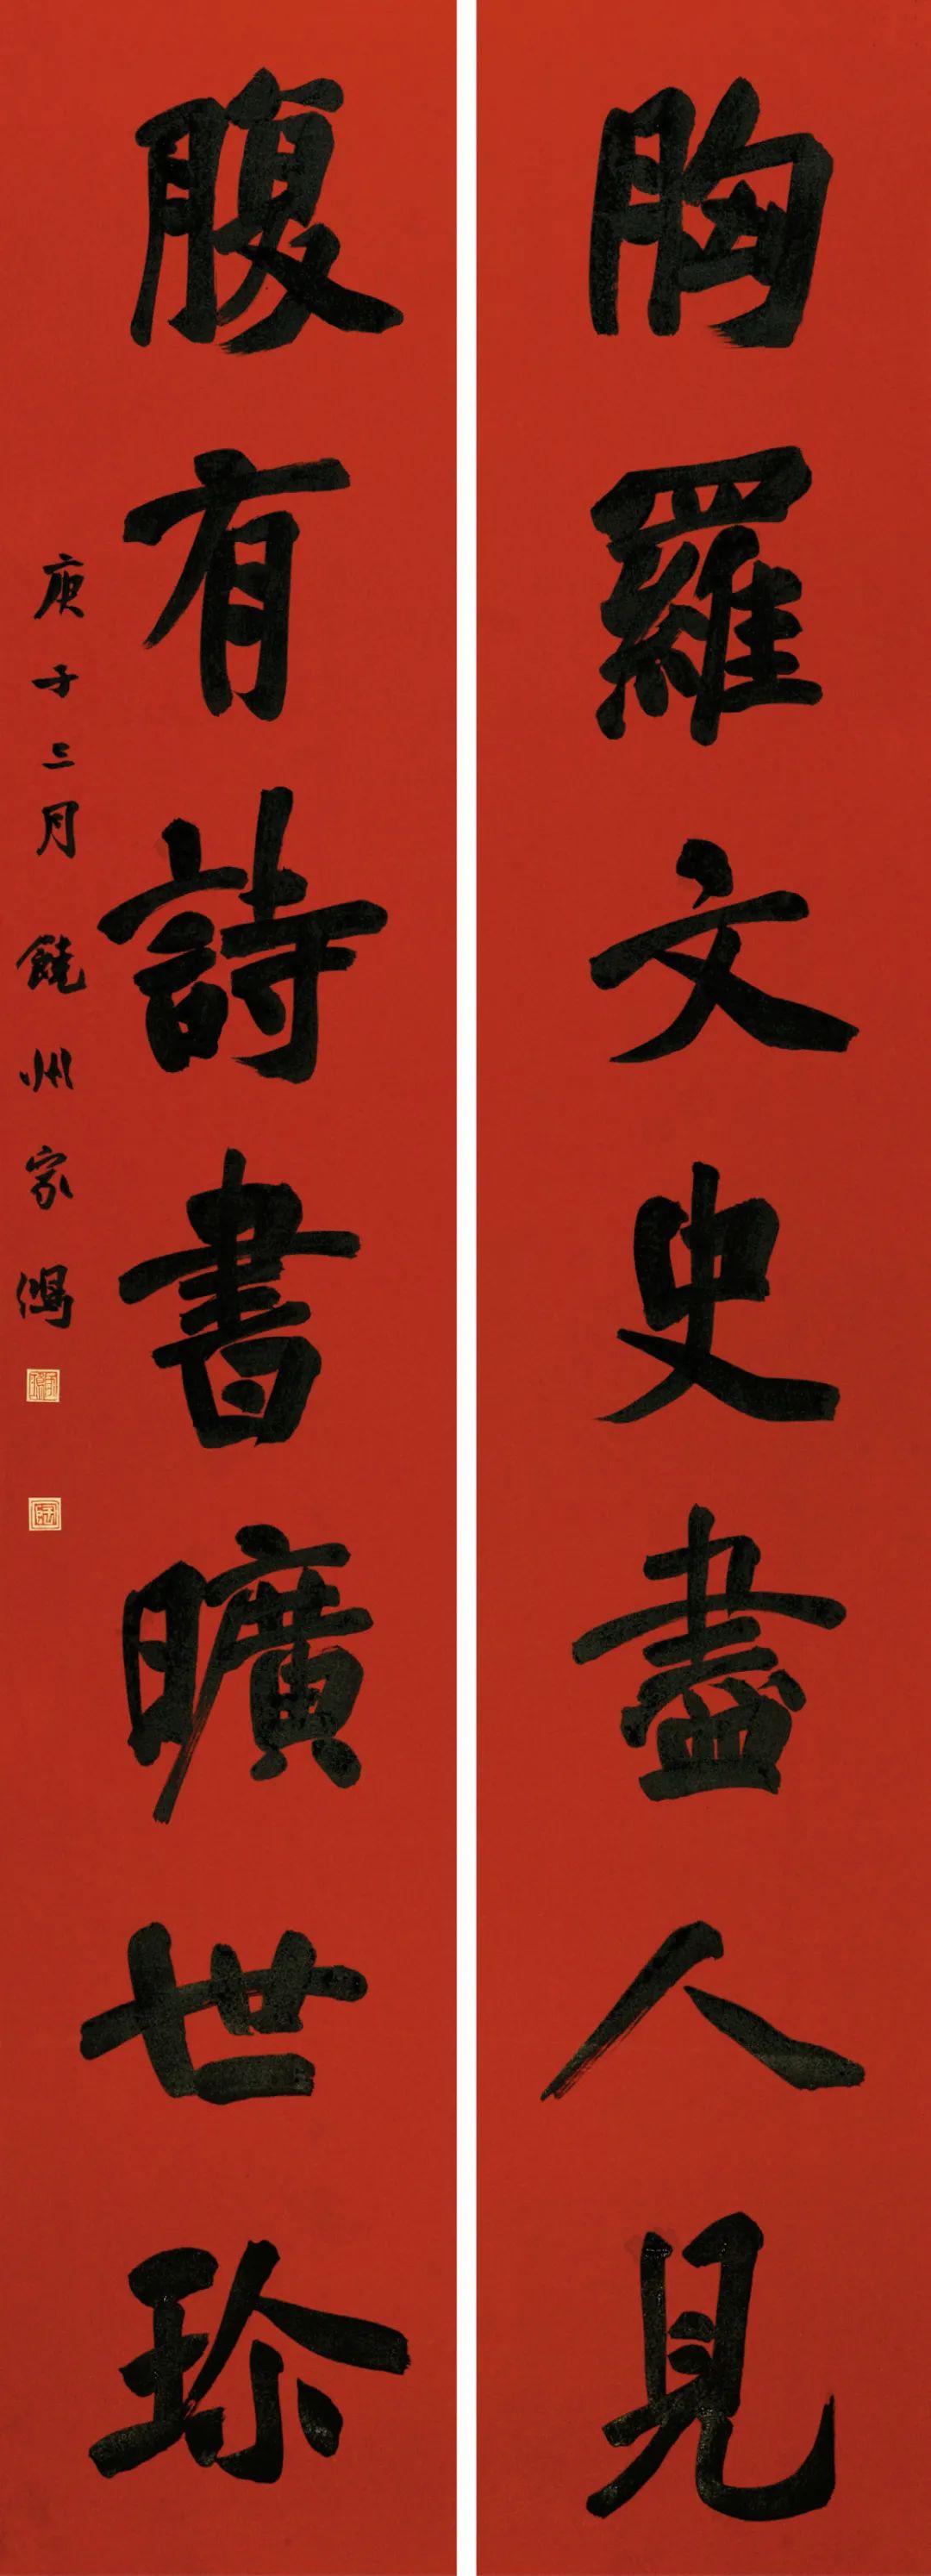 胸羅文史盡人見
腹有詩書曠世珍
庚子三月
饒州家鴻